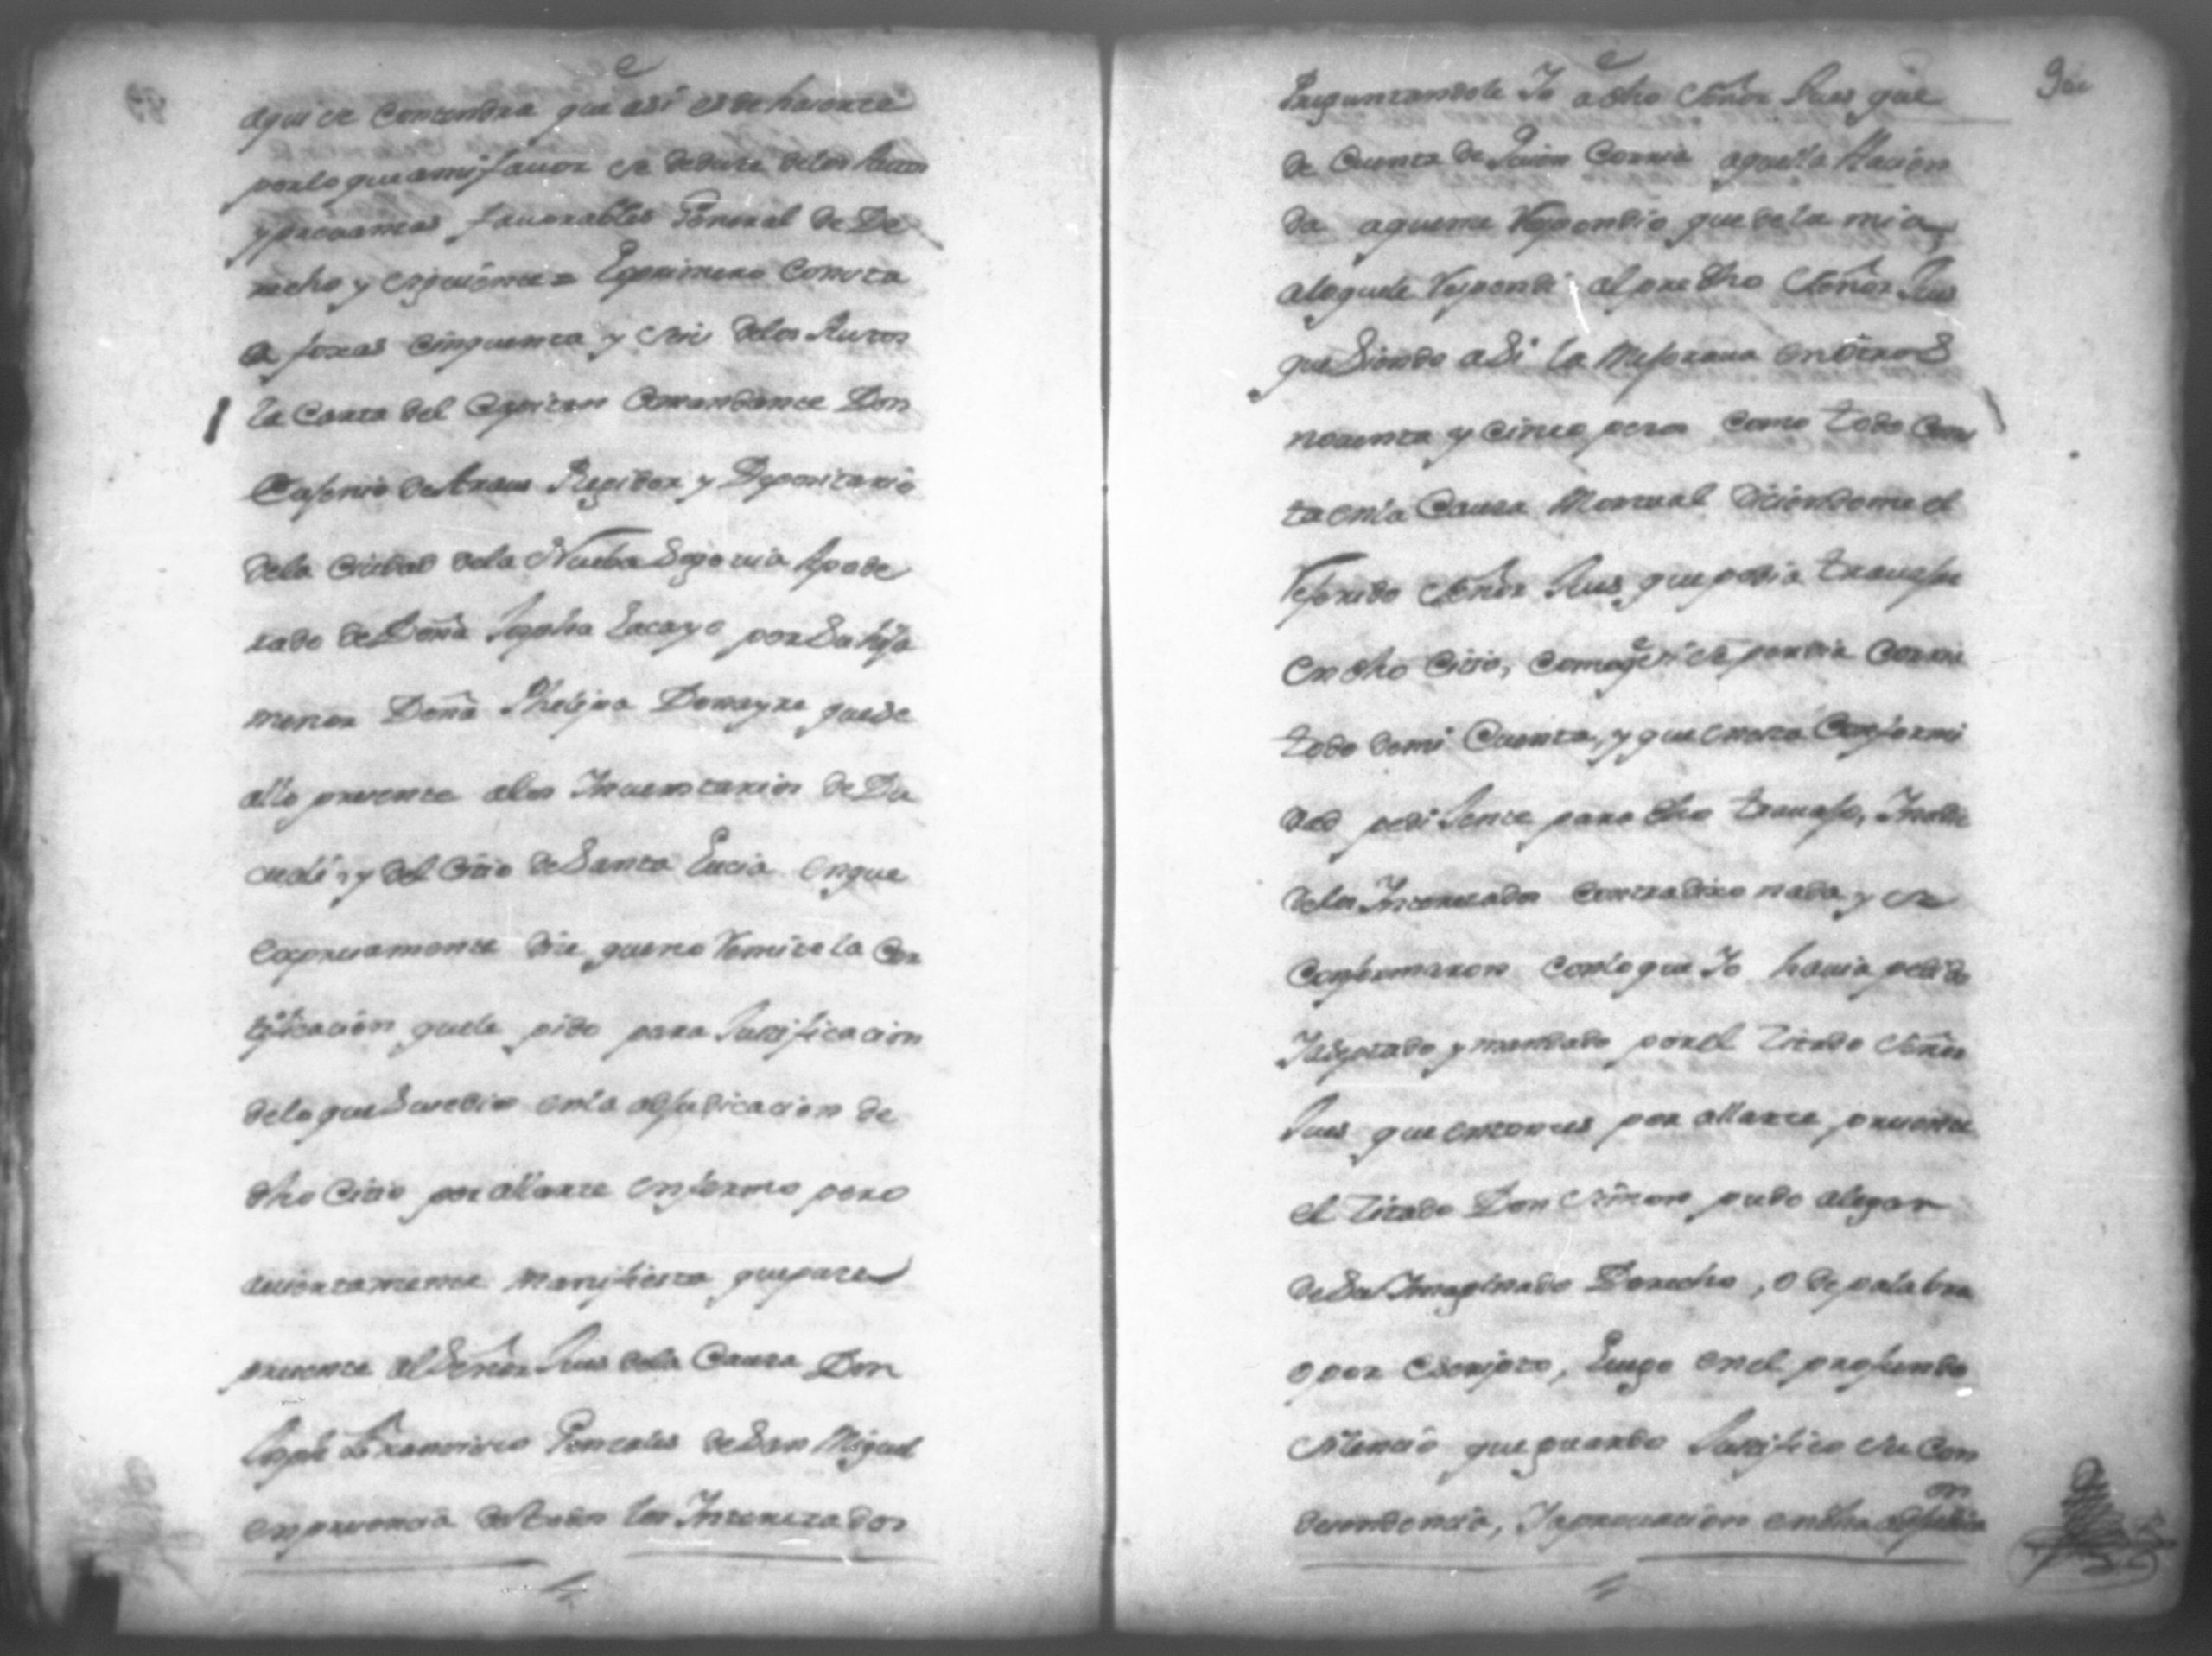 aqui se contendra que asi es de hacerce
por lo que ami favor se deduce delos Autos
y provansas favorables General de De
recho y siguiente = Lo primero Consta
a foxas cinquenta y seis delos Autos
la Carta del Capitan Comandante Don
de Araus Regidor y Depositario
dela Ciudad dela Nueba Segovia Apode
rado de Doña Lacayo por Su hija
menor Doña Phelipa quese
allo presente alos Inventarios de
y del Citio de Santa Lucia enque
expresamente dice queno remite la Cer
tificacion quele pido para Justificacion
delo que Susedio enla adjudicacion de
dho Citio por allarce enfermo pero
manifiesta que
presente al Señor Jues dela Causa Don
Joseph Francisco Gonzales de San Miguel
enpresencia de todos los Interezados
Preguntandole Io a dho Señor Jues que
de Cuenta de Quien Corria aquella Hacien
da aqueme Respondio que dela mia
aloquele Respondi al pre dho Señor Jues
que Siendo aSi la Mejorava en otros
noventa y cinco pesos como todo Cons
ta enla Causa Mortual diciendome el
Referido Señor Jues que podia
en dho Citio, Corria
todo demi Cuenta, y que enesta Conformi
dad pedi para dho
delos Interezados contradixo nada y se
Conformaron conlo que Io havia pedido
y mandado porel Citado Señor
Jues que entonces por allarce presente
el Citado Don Simon pudo alegar
de Su Imaginado Derecho, o de palabra
o por Escripto, Luego enel profundo
Silencio que guardo Justifico su Con
desendencia, Iaprovacion endha